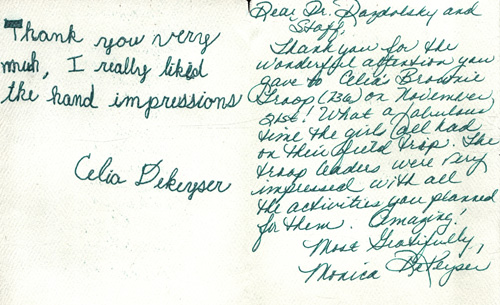 Thank you very
much, I really liked
the hand impressions
Celia Dekeyser
Dear Dr. Razdolsky and
Staff,
Thank you for the
wonderful attention you
gave to Celia's Brownie
Troop (736) on November
21st! What a fabulous
time the girls all had
on their field trop. The
troop leaders were very
impressed with all
the activities you planned
for them. Amazing!
Most Gratifully,
Monica DeKeyser